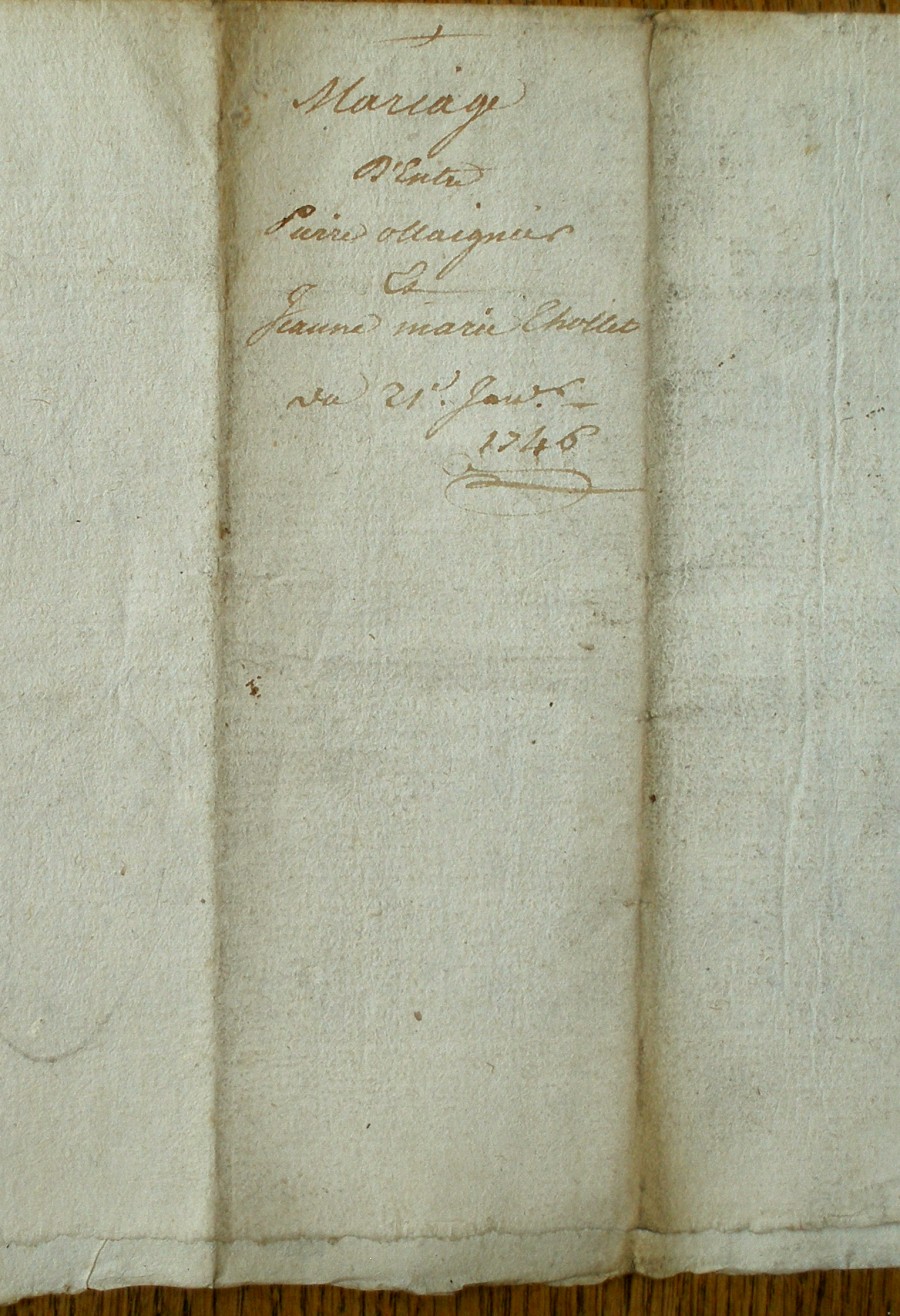 Mariage
D'Entre
Pierre Maignier
Et
Jeanne marie Chollet
du 21e. Janv.r
1746